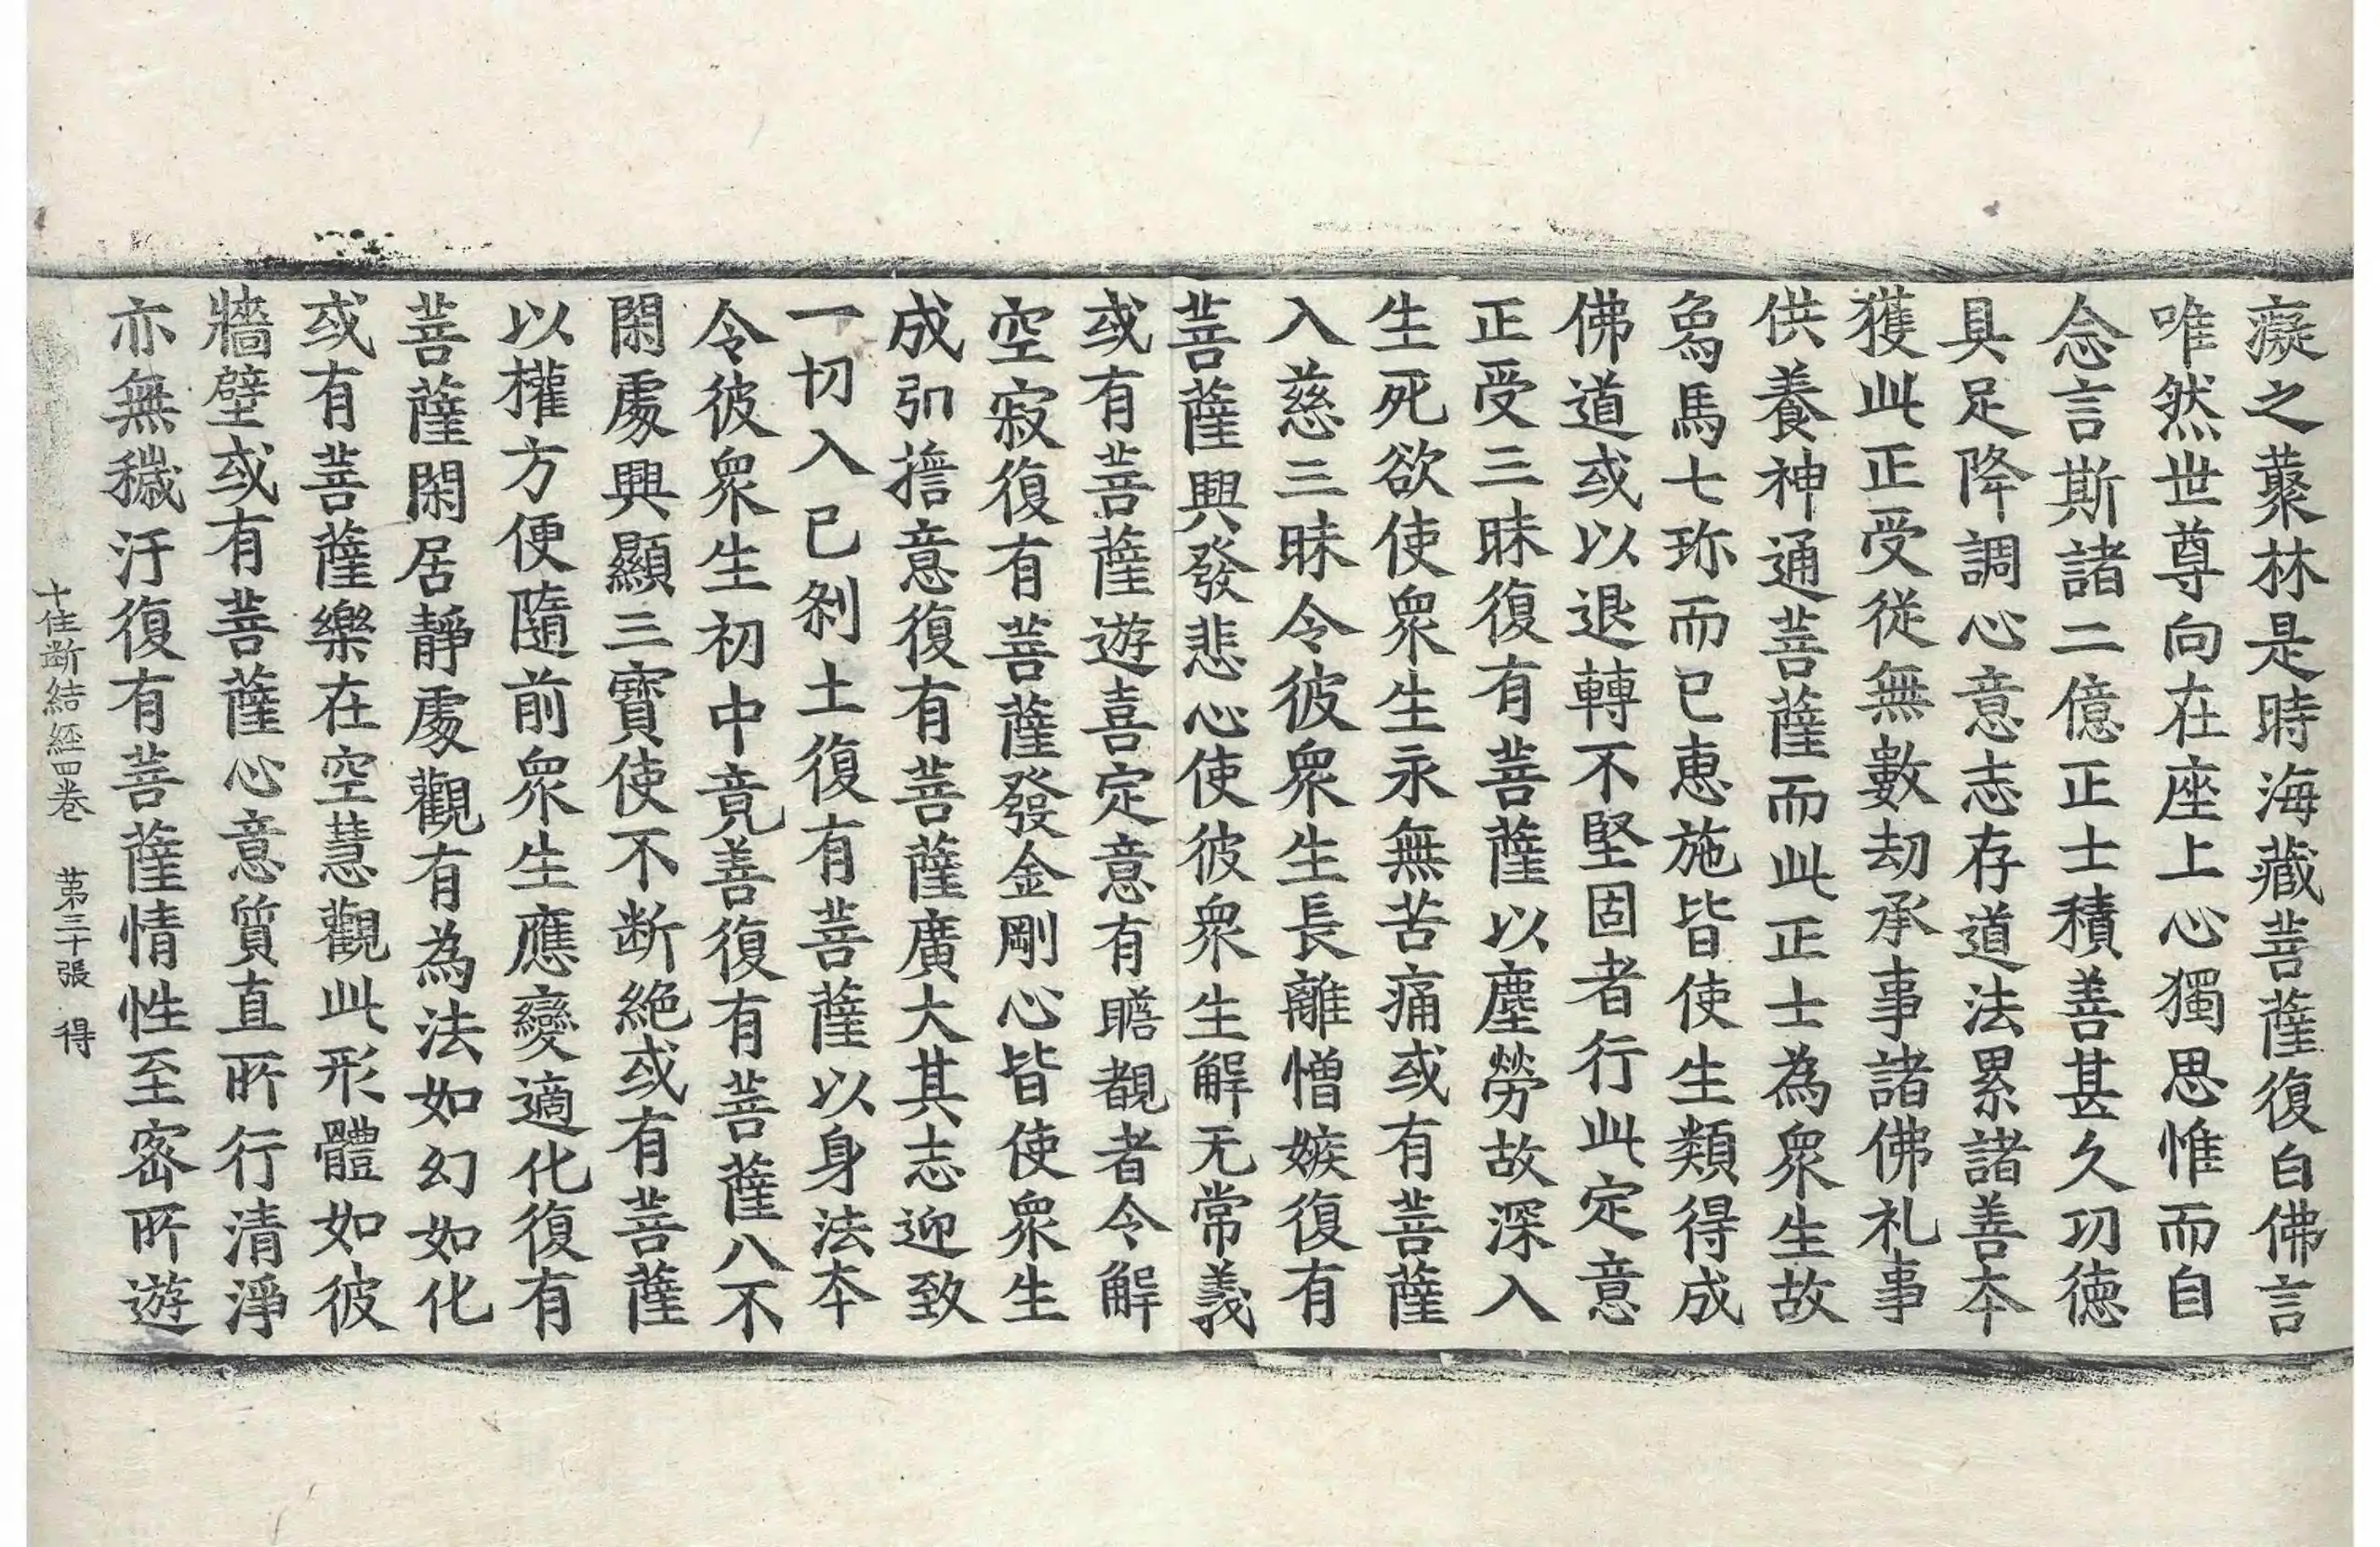 癡之藂林是時海藏菩薩復白佛言
唯然世尊向在座上心獨思惟而自
念言斯諸二億正士積善甚久功德
具足降調心意志存道法累諸善本
獲此正受從無數劫承事諸佛礼事
供養神通菩薩而此正士為衆生故
為馬七珎而已惠施皆使生類得成
佛道或以退轉不堅固者行此定意
正受三昧復有菩薩以塵勞故深入
生死欲使衆生永無苦痛或有菩薩
入慈三昧令彼衆生長離憎嫉復有
菩薩興發悲心使彼衆生解无常義
或有菩薩遊喜定意有瞻覩者令解
空寂復有菩薩發金剛心皆使衆生
成弘擔意復有菩薩廣大其志迎致
一切入已剎土復有菩薩以身法本
令彼衆生初中竟善復有菩薩八不
閑處興顯三寶使不斷絶或有菩薩
以權方便隨前衆生應變適化復有
菩薩閑居靜處觀有為法如幻如化
或有菩薩樂在空慧觀此形體如彼
牆壁或有菩薩心意質直所行清淨
亦無穢汙復有菩薩情性至密所遊
十住断結經四卷 第三十張 得